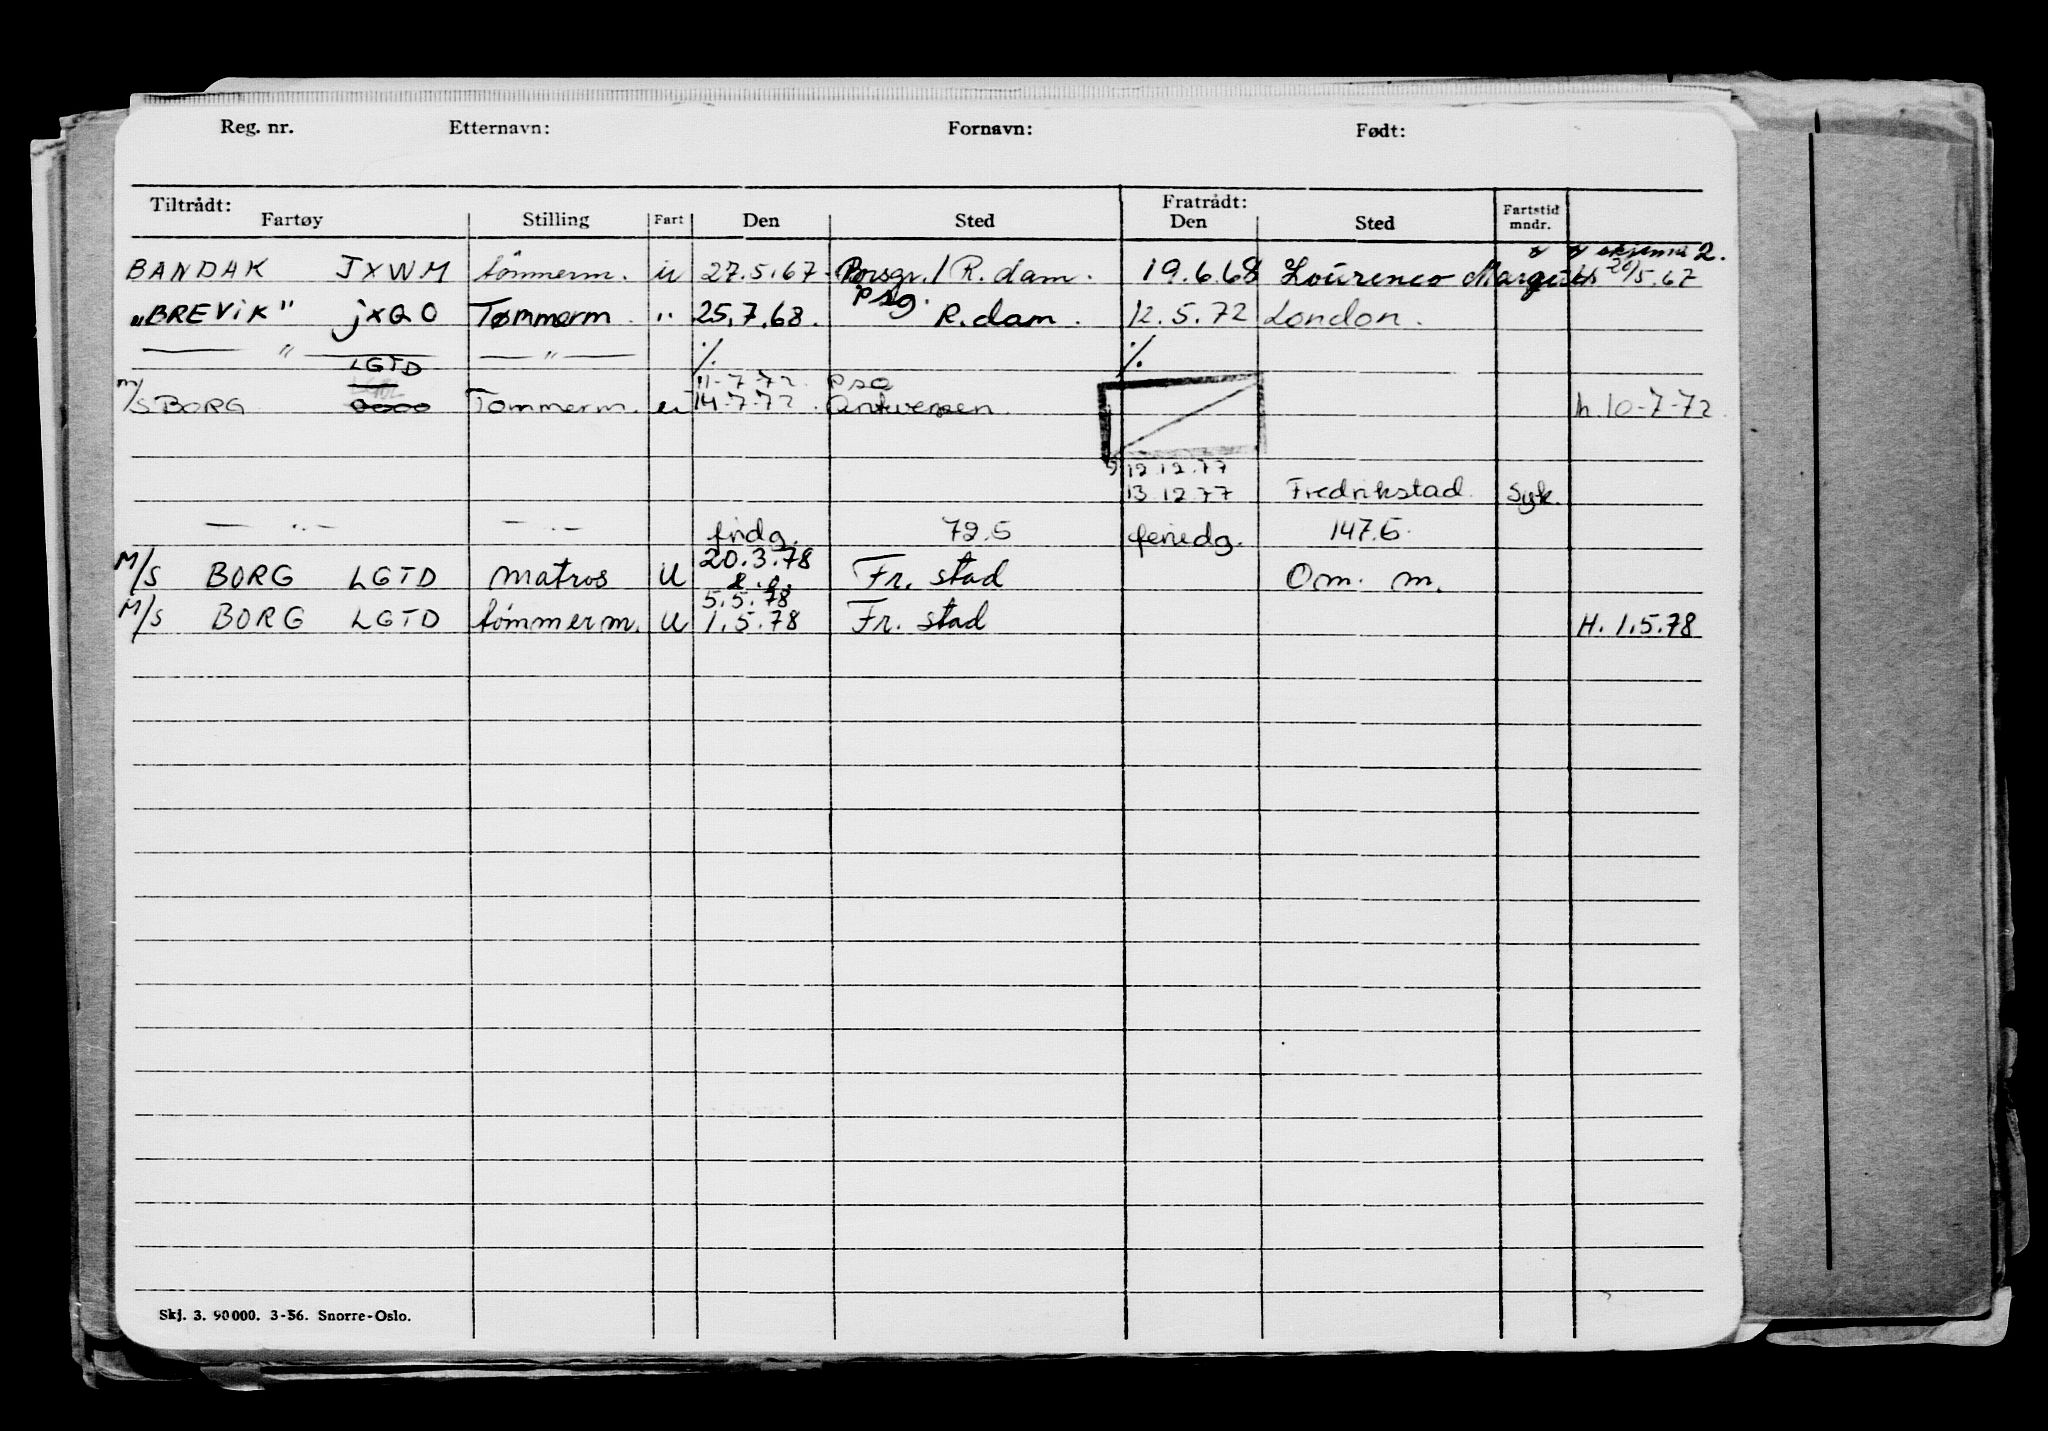 Reg. nr. Etternavn: Fornavn: Født:
Tiltrådt: Fratrådt:
Fartøy Stilling Fart Den Sted Den Sted Fartstid mndr.
skjema 2.
BANDAK JXWM tömmerm. u 27.5.67 Porsgr. / R. dam. 19.6.68 Lourenco Marques 20/5.67
psg.
"BREViK" jxGO Tømmerm. " 25.7.68. R. dam. 12.5.72 London.
— " — — " — ./. ./.
LGTD 11-7-72. psg
M/S BORG Tømmerm. u 14-7-72. Antwerpen. h. 10-7-72.
12.12.77
13.12.77 Fredrikstad. Syk.
— " — — " — fridg. 72.5 feriedg. 147.5.
20.3.78
M/S BORG LGTD matros U Fr. stad Om. m.
5.5.78
M/S BORG LGTD tömmerm. U 1.5.78 Fr. stad H. 1.5.78
Skj. 3. 90000. 3-56. Snorre-Oslo.